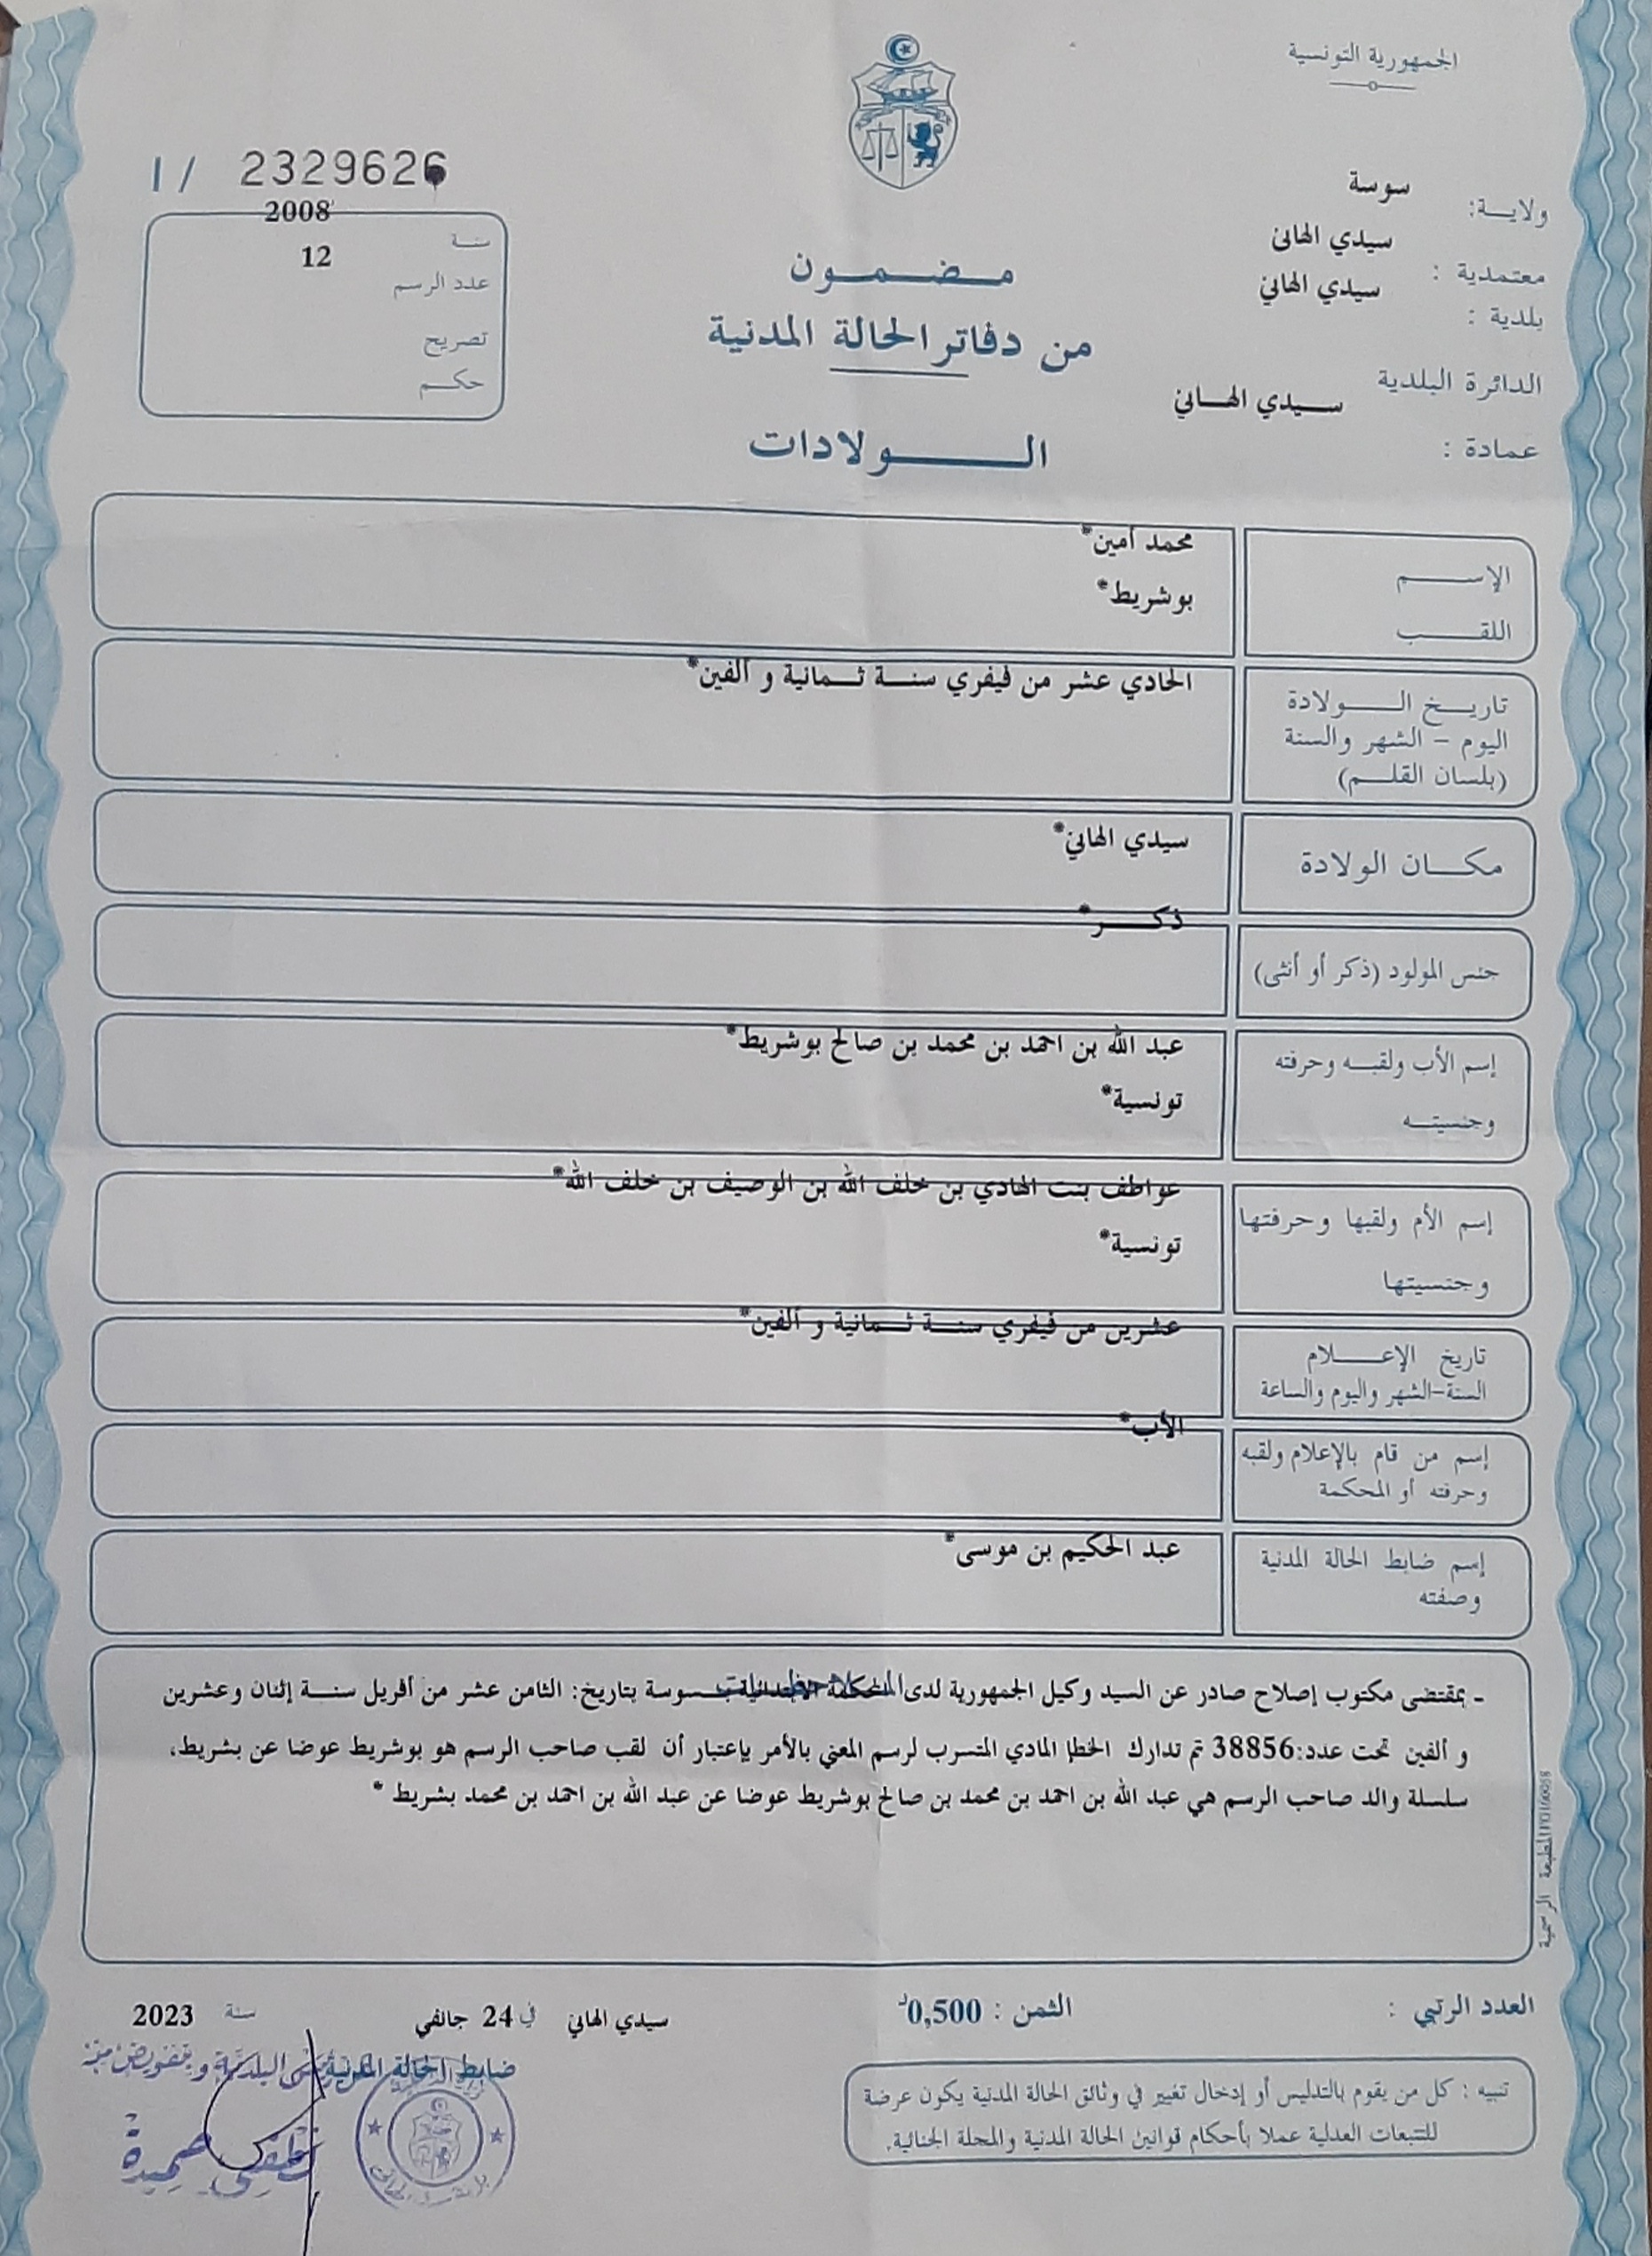 الجمهورية التونسية
ولايــة: سوسة
معتمدية : سيدي الهاني
بلدية : سيدي الهاني
الدائرة البلدية سـيدي الهـاني
عمادة :
1/ 2329626
سنـة 2008
عدد الرسم 12
تصريح
حكـم
مـضـمـون
من دفاتر الحالة المدنية
الـولادات
الإسـم محمد أمين*
اللقـب بوشريط*
تاريـخ الـولادة الحادي عشر من فيفري سنـة ثـمانية و ألفين*
اليوم - الشهر والسنة
(بلسان القلـم)
مكـان الولادة سيدي الهاني*
جنس المولود (ذكر أو أنثى) ذكـر*
إسم الأب ولقبـه وحرفته عبد الله بن احمد بن محمد بن صالح بوشريط*
وجنسيتـه تونسية*
إسم الأم ولقبها وحرفتها عواطف بنت الهادي بن خلف الله بن الوصيف بن خلف الله*
وجنسيتها تونسية*
تاريخ الإعـلام عشرين من فيفري سنـة ثـمانية و ألفين*
السنة-الشهر واليوم والساعة
إسم من قام بالإعلام ولقبه الأب*
وحرفته أو المحكمة
إسم ضابط الحالة المدنية عبد الحكيم بن موسى*
وصفته
الملاحظـات
- بمقتضى مكتوب إصلاح صادر عن السيد وكيل الجمهورية لدى المحكمة الابتدائية بـسوسة بتاريخ: الثامن عشر من أفريل سنـة إثنان وعشرين
و ألفين تحت عدد:38856 تم تدارك الخطإ المادي المتسرب لرسم المعني بالأمر بإعتبار أن لقب صاحب الرسم هو بوشريط عوضا عن بشريط،
سلسلة والد صاحب الرسم هي عبد الله بن احمد بن محمد بن صالح بوشريط عوضا عن عبد الله بن احمد بن محمد بشريط *
المطبعة الرسمية
العدد الرتبي :
الثمن : 0,500د
سيدي الهاني في 24 جانفي سنة 2023
ضابط الحالة المدنية
البلدية وبتفويض منه
تنبيه : كل من يقوم بالتدليس أو إدخال تغيير في وثائق الحالة المدنية يكون عرضة
للتتبعات العدلية عملا بأحكام قوانين الحالة المدنية والمجلة الجنائية.